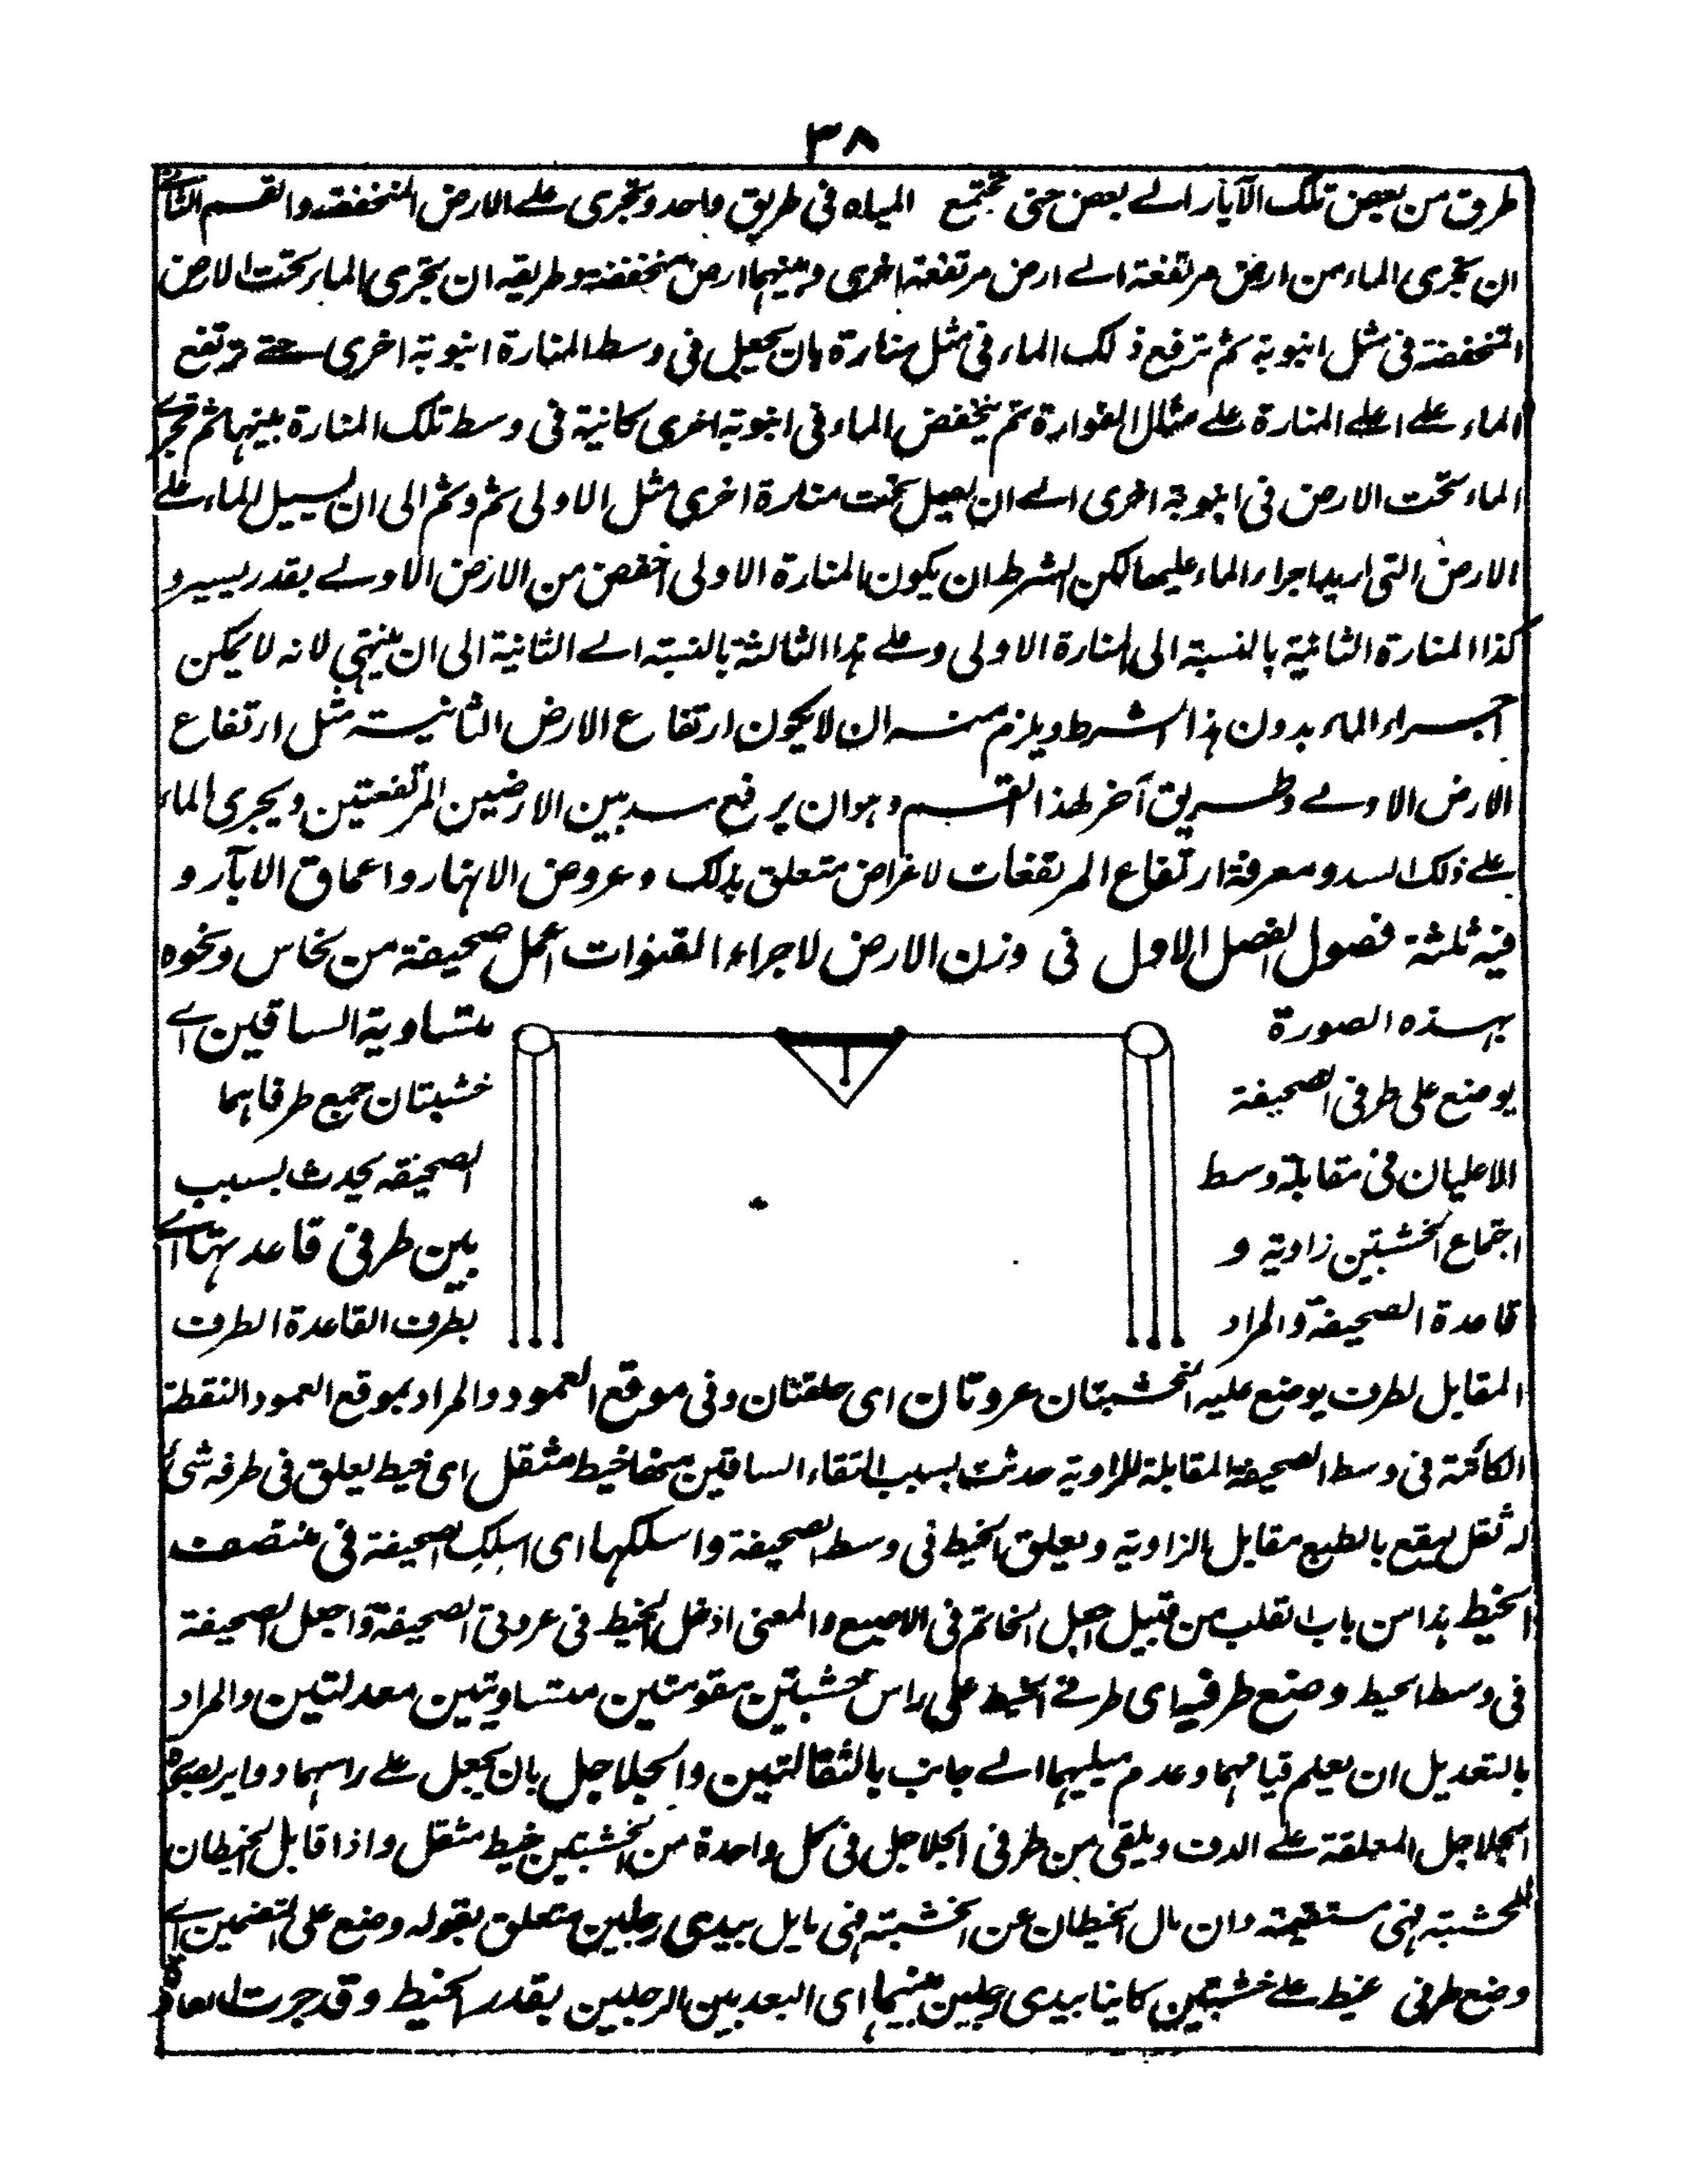 ٣٨
طرق من بعض تلك الآبار الے بعض حتى تجتمع المياه فى طريق واحد وتجرى علے الارض المنخفضة والقسم الثانے
ان يجرى الماء من ارض مرتفعة الے ارض مرتفعة اخرى وبينهما ارض منخفضة وطريقه ان يجرى الماء تحت الارض
المنخفضة فى مثل انبوبة ثم ترفع ذلك الماء فى مثل منارة بان يجعل فى وسط المنارة انبوبة اخرى حتے ترتفع
الماء علے اعلے المنارة علے مثال الفوارة ثم ينخفض الماء فى انبوبة اخرى كائنة فى وسط تلك المنارة بينها ثم تجرے
الماء تحت الارض فى انبوبة اخرى الے ان يصل تحت منارة اخرى مثل الاولى ثم وثم الى ان يسيل الماء علے
الارض التى اريد اجراء الماء عليها لكن الشرط ان يكون المنارة الاولى اخفض من الارض الاولے بقدر يسير و
كذا المنارة الثانية بالنسبة الى المنارة الاولى وعلے هذا الثالثة بالنسبة الے الثانية الى ان ينتهى لانه لا يمكن
اجراء الماء بدون هذا الشرط ويلزم منه ان لا يكون ارتفاع الارض الثانية مثل ارتفاع
الارض الاولے وطريق آخر لهذا القسم وهو ان يرفع سد بين الارضين المرتفعتين ويجرى الماء
علے ذلك السد ومعرفة ارتفاع المرتفعات لاغراض متعلق بذلك وعروض الانهار واعماق الآبار و
فيه ثلثة فصول الفصل الاول فى وزن الارض لاجراء القنوات اعمل صحيفة من نحاس ونحوه
بهذه الصورة متساوية الساقين اے
يوضع على طرفى الصحيفة خشبتان جمع طرفاهما
الاعليان فى مقابلة وسط الصحيفة يحدث بسبب
اجتماع الخشبتين زاوية و بين طرفى قاعدتها اے
قاعدة الصحيفة والمراد بطرف القاعدة الطرف
المقابل لطرف يوضع عليه الخشبتان عروتان اى حلقتان وفى موقع العمود والمراد بموقع العمود النقطة
الكائنة فى وسط الصحيفة المقابلة للزاوية حدثت بسبب التقاء الساقين منها خيط مثقل اى خيط يعلق فى طرفه شئ
له ثقل ليقع بالطبع مقابل الزاوية ويعلق الخيط فى وسط الصحيفة واسلكها اى اسلك الصحيفة فى منتصف
الخيط هذا من باب القلب من قبيل اجعل الخاتم فى الاصبع والمعنى ادخل الخيط فى عروتى الصحيفة واجعل الصحيفة
فى وسط الخيط وضع طرفيه اى طرفے الخيط على راس خشبتين مقومتين متساويتين معدلتين والمراد
بالتعديل ان يعلم قيامهما وعدم ميليهما الے جانب بالثقالتين والجلاجل بان يجعل علے راسهما دواير
الجلاجل المعلقة علے الدف ويلقى من طرفى الجلاجل فى كل واحدة من الخشبتين خيط مثقل واذا قابل الخيطان
للخشبة فهى مستقيمة وان مال الخيطان عن الخشبة فهى مايل بيدى رجلين متعلق بقوله وضع على التضمين اے
وضع طرفى خيط علے خشبتين كاينا بيدى رجلين بينهما اى البعد بين الرجلين بقدر الخيط وقد جرت العادة